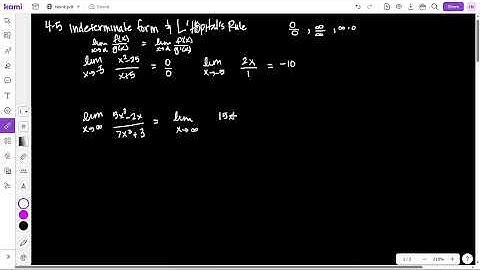 kami
4-5 Indeterminate form & L'Hôpital's Rule 0/0 , ∞/∞ , ∞·0
lim x→a f(x)/g(x) = lim x→a f'(x)/g'(x)
lim x→-5 x²-25/x+5 = 0/0 lim x→-5 2x/1 = -10
lim x→∞ 5x³-2x/7x³+3 = lim x→∞ 15x